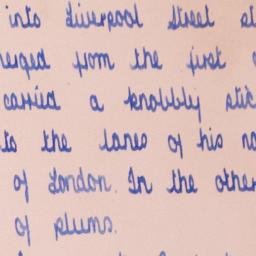 into Liverpool Street
merged from the first
carried a knobbly
to the lanes of his
of London. In the other
of plums.